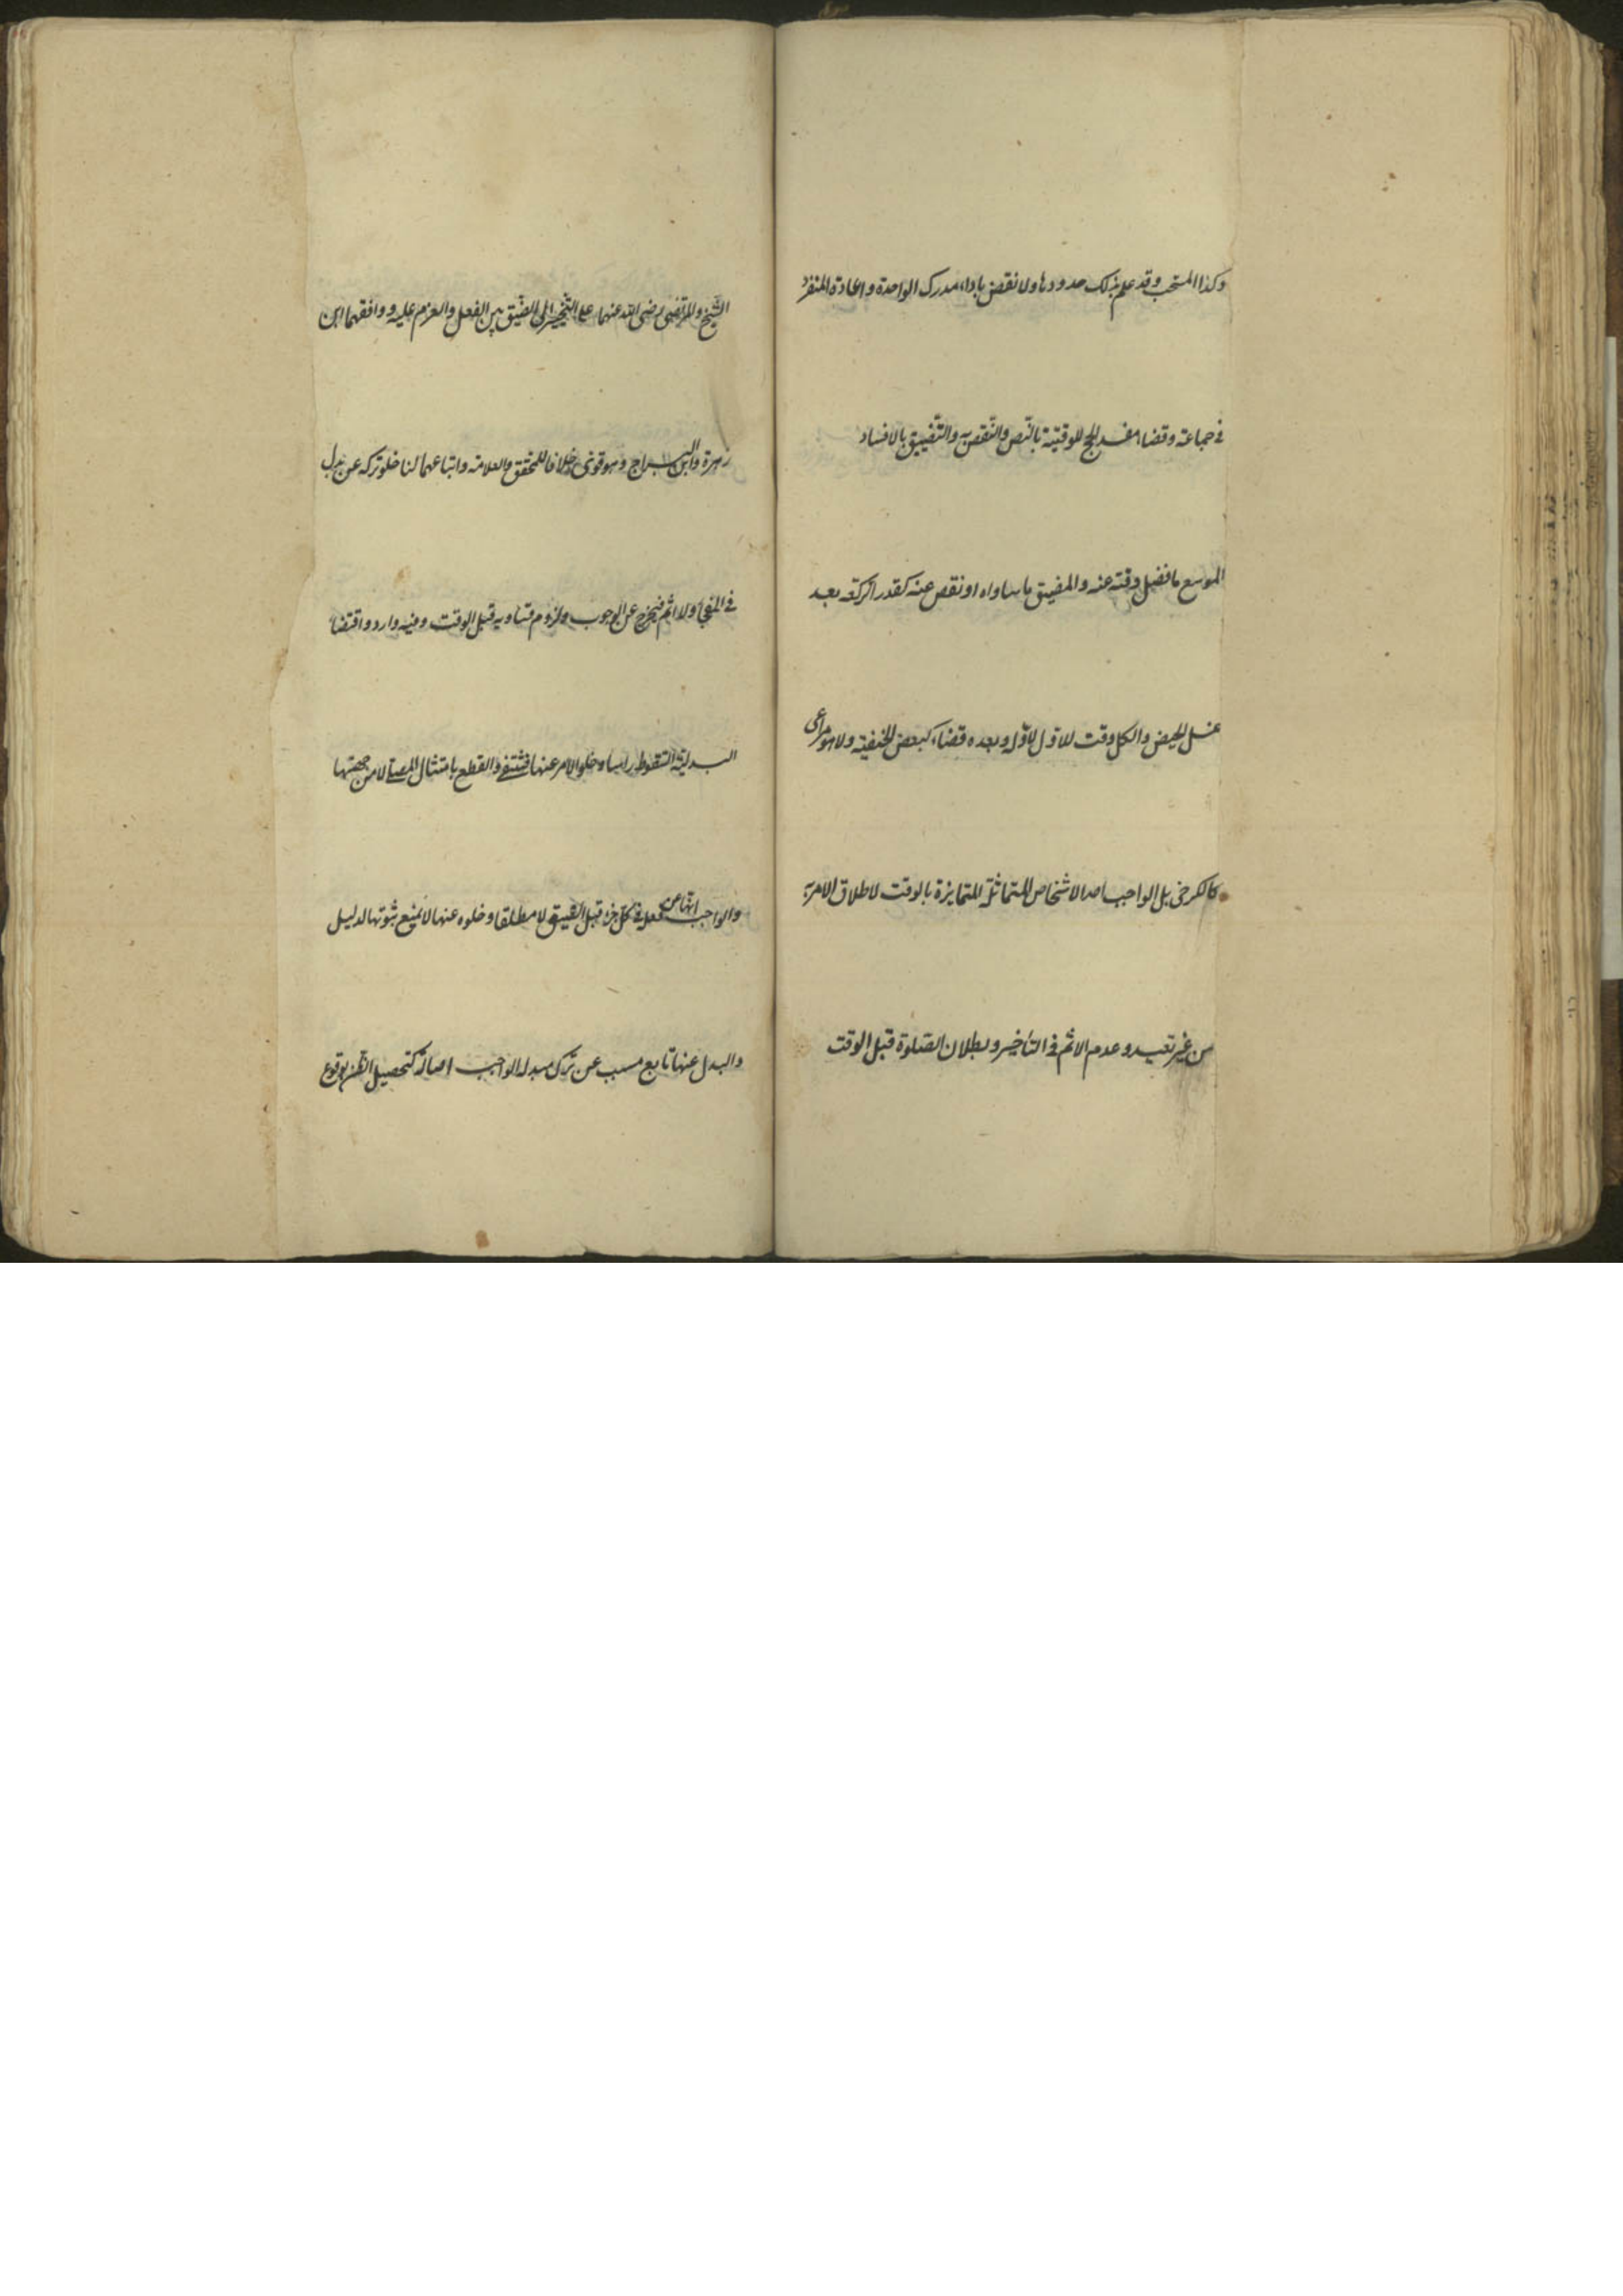 وكذا المستحب وقد علم بذلك حدودها ولا نقض باداء مدرك الواحدة واعادة المنفرد
في جماعة وقضاء مفسد الحج للوقتية بالنص والنقص به والتضييق بالافساد
الموسع ما فضل وقته عنه والمضيق ما ساواه او نقص عنه كقدر الركعة بعد
غسل الحيض والكل وقت للاول لا اوله وبعده قضاء كبعض الحنفية ولا هو مراعى
كالكرخي بل الواجب احد الاشخاص المتماثلة المتمايزة بالوقت لاطلاق الامر به
من غير تقييد وعدم الاثم في التاخير وبطلان الصلوة قبل الوقت
الشيخ والمرتضى رضي الله عنهما على التخيير الى الضيق بين الفعل والعزم عليه ووافقهما ابن
زهرة وابن البراج وهو قوي خلافا للمحقق والعلامة واتباعهما لنا خلو تركه عن بدل
في المفاجا ولا اثم فيخرج عن الوجوب ولزوم تساويه قبل الوقت وفيه وارد واقتضاء
البدلية السقوط راسا وخلو الامر عنها فتنتفي والقطع بامتثال المصلي لا من جهتها
والواجب انها عن فعل في كل جزء قبل الضيق لا مطلقا وخلوه عنها لا يمنع ثبوتها لدليل
والبدل عنها تابع مسبب عن ترك مبدل الواجب اصالة كتحصيل الظن بوقوع